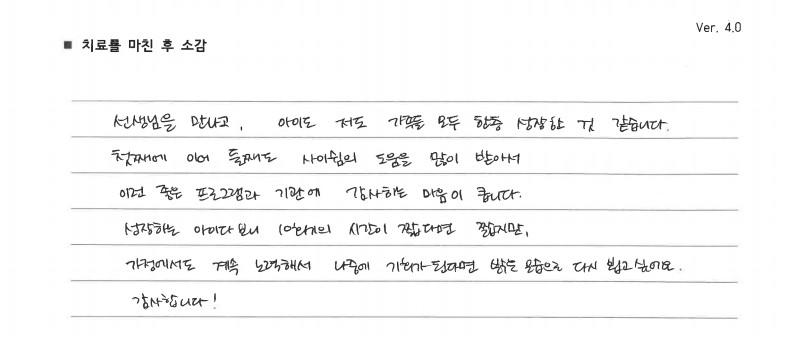 Ver. 4.0
■ 치료를 마친 후 소감
선생님을 만나고, 아이도 저도 가족들 모두 한층 성장한 것 같습니다.
첫째에 이어 둘째도 사이쉼의 도움을 많이 받아서
이런 좋은 프로그램과 기관에 감사하는 마음이 큽니다.
성장하는 아이다 보니 10회기의 시간이 짧다면 짧지만,
가정에서도 계속 노력해서 나중에 기회가 된다면 밝은 모습으로 다시 뵙고 싶어요.
감사합니다!